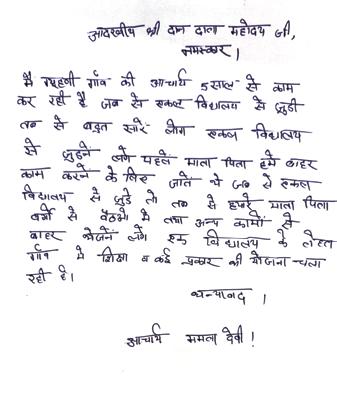 आदरणीय श्री दान दाता महोदय जी,
नमस्कार।
मै गाँव की आचार्य 5 साल से काम
कर रही हैं जब से एकल विद्यालय से जुडी
तब से बहुत सारे लोग एकल विद्यालय
से जुडनें लगे पहले माता पिता हमे बाहर
काम करने के लिए जाते थे जब से एकल
विद्यालय से जुडे तो तब से हमारे माता पिता
से बैठको में तथा अन्य कामों से
बाहर भेजनें लगें इस विद्यालय के तेहत
गाँव में शिक्षा व कई प्रकार की योजना चला
रही है।
धन्यवाद।
आचार्य ममता देवी!